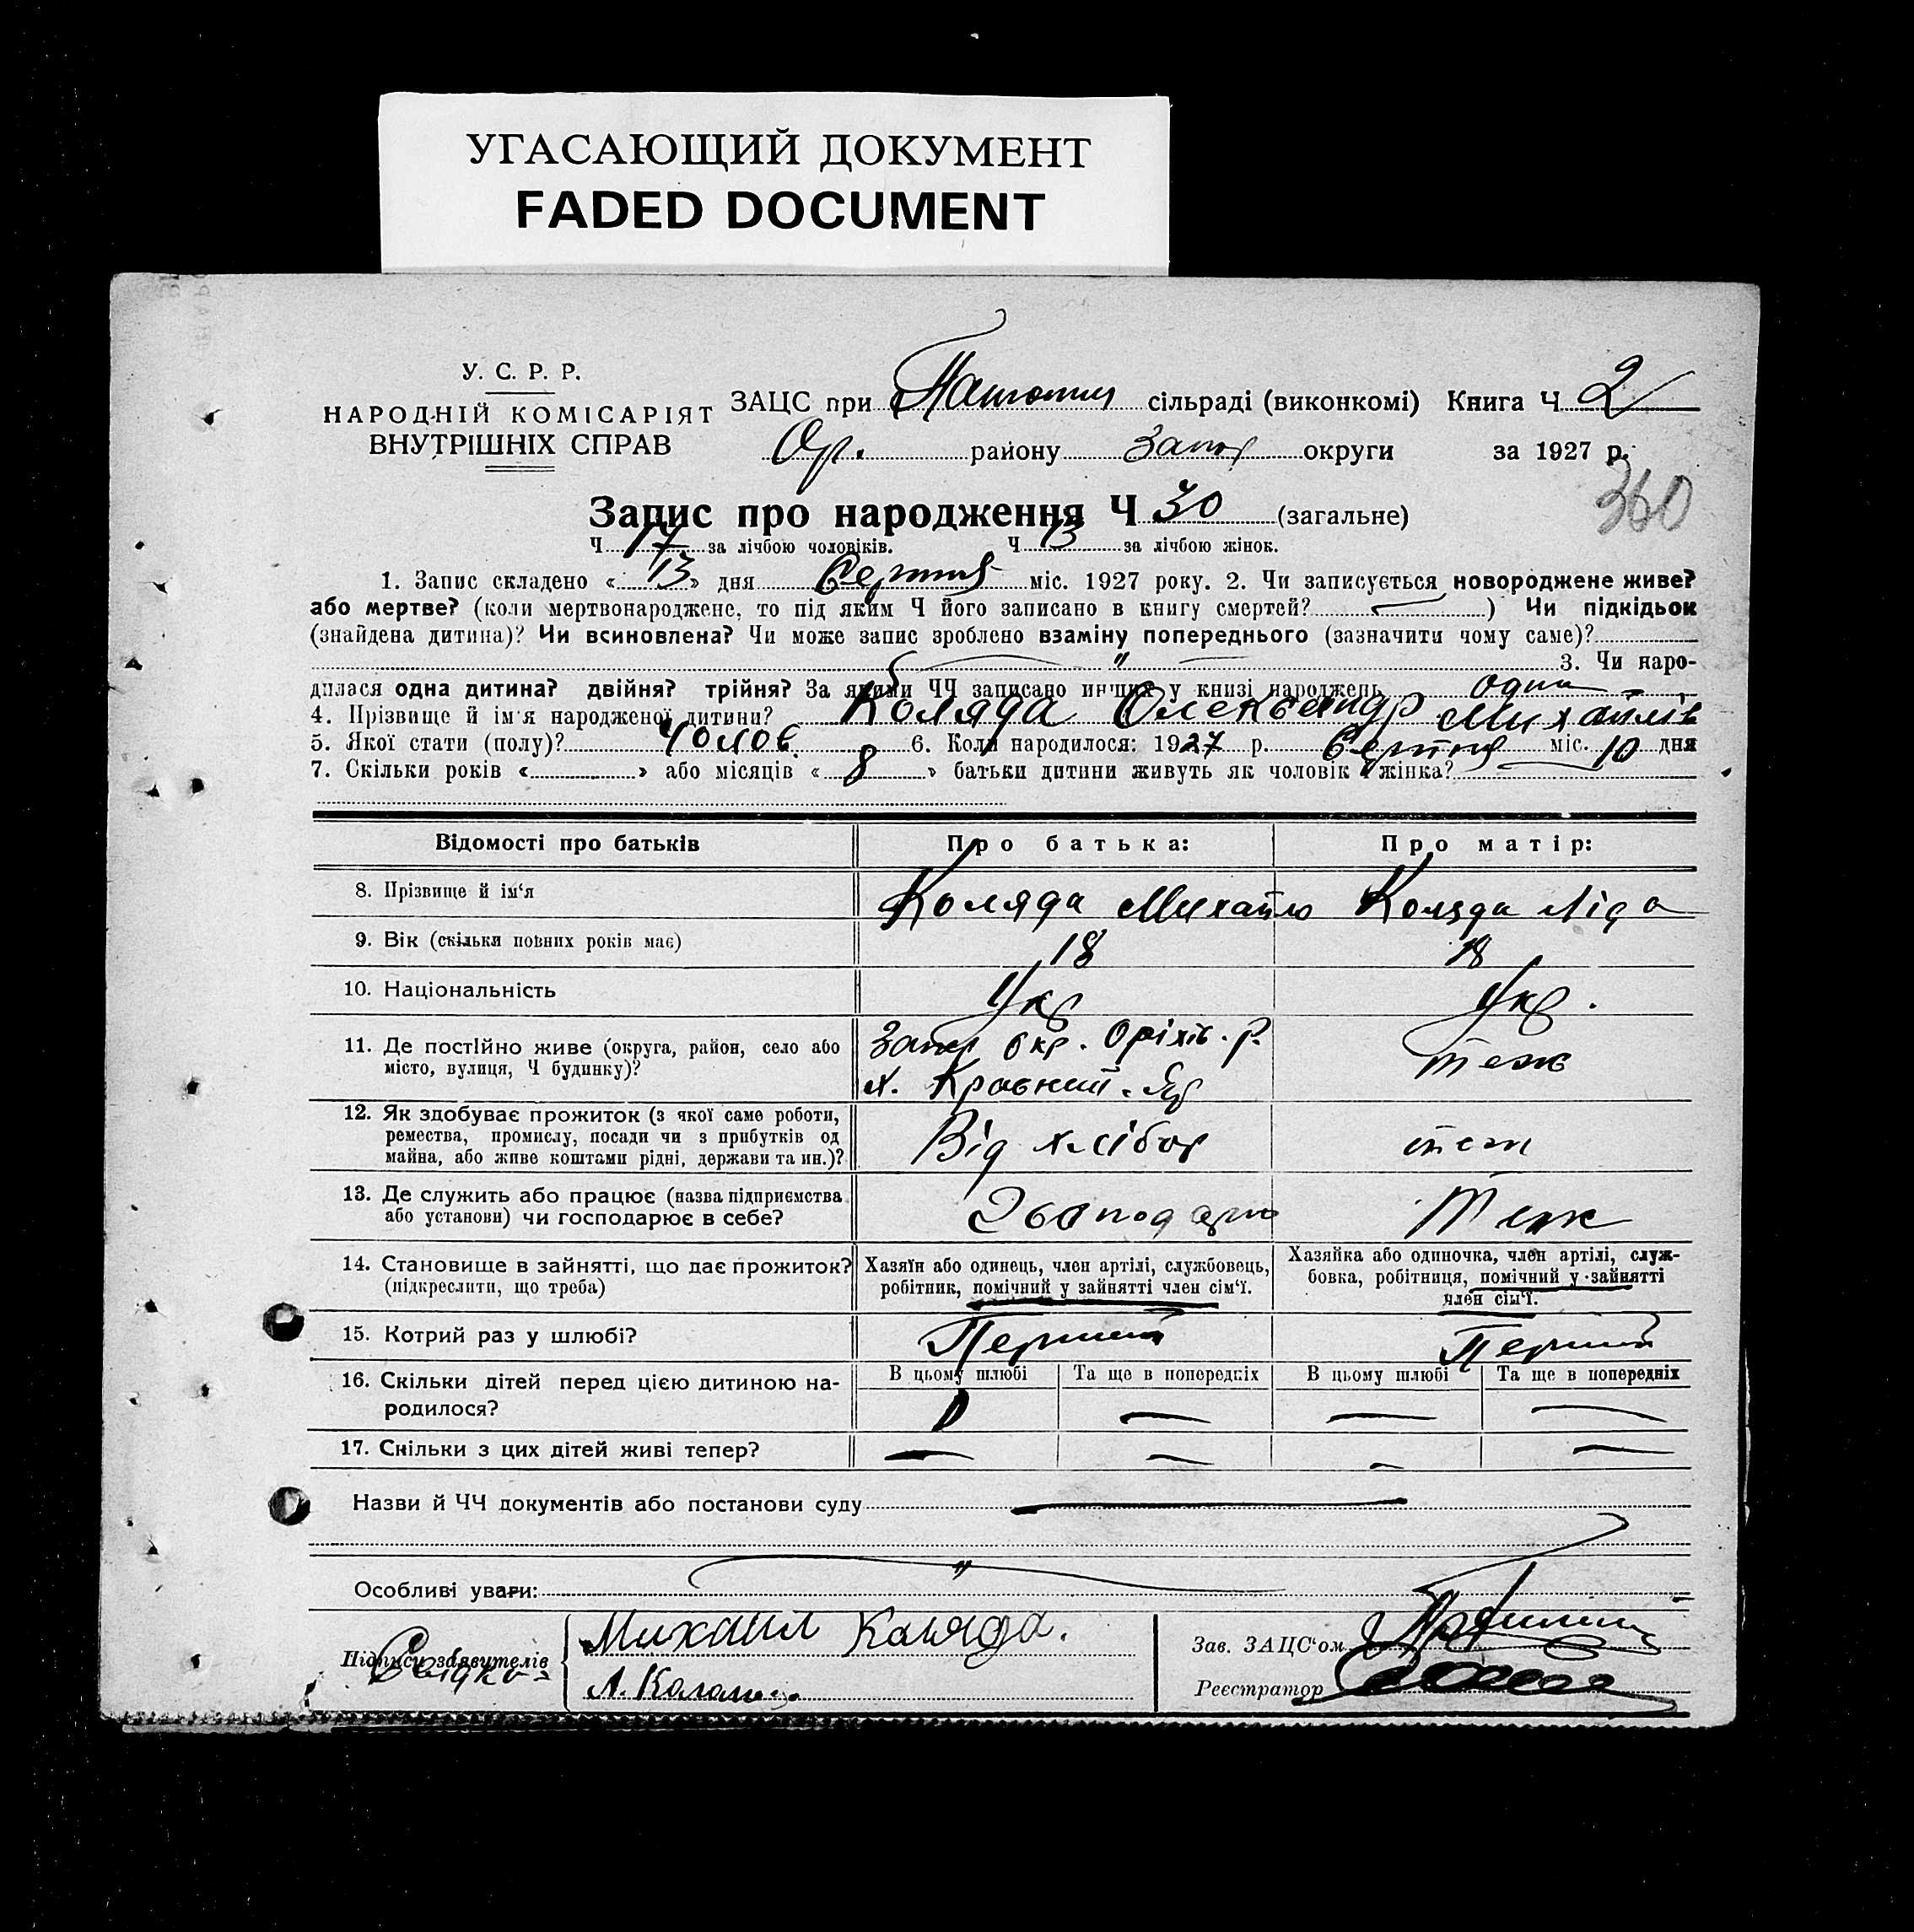 УГАСАЮЩИЙ ДОКУМЕНТ
FADED DOCUMENT
У. С. Р. Р.
НАРОДНІЙ КОМІСАРІЯТ
ВНУТРІШНІХ СПРАВ
ЗАЦС при сільраді (виконкомі) Книга Ч. 2
Ор. району Запор округи за 1927 р.
360
Запис про народження Ч 30 (загальне)
Ч 17 за лічбою чоловіків. Ч 13 за лічбою жінок.
1. Запис складено « 13 » дня Серпня міс. 1927 року. 2. Чи записується новороджене живе?
або мертве? (коли мертвонароджене, то під яким Ч його записано в книгу смертей? ) Чи підкідьок
(знайдена дитина)? Чи всиновлена? Чи може запис зроблено взаміну попереднього (зазначити чому саме)?
" 3. Чи наро-
дилася одна дитина? двійня? трійня? За якими ЧЧ записано инших у книзі народжень одна
4. Прізвище й ім'я народженої дитини? Коляда Олександр Михайлів
5. Якої стати (полу)? Чолов. 6. Коли народилося: 1927 р. Серпня міс. 10 дня
7. Скільки років « » або місяців « 8 » батьки дитини живуть як чоловік і жінка?
Відомості про батьків Про батька: Про матір:
8. Прізвище й ім'я Коляда Михайло Коляда Ліда
9. Вік (скільки повних років має) 18 18
10. Національність Укр Укр.
11. Де постійно живе (округа, район, село або Запор окр. Оріхів. р.
місто, вулиця, Ч будинку)? х. Кравкий. Яр теж
12. Як здобуває прожиток (з якої саме роботи,
ремества, промислу, посади чи з прибутків од Від хлібор теж
майна, або живе коштами рідні, держави та ин.)?
13. Де служить або працює (назва підприємства
або установи) чи господарює в себе? Теж
14. Становище в зайнятті, що дає прожиток? Хазяїн або одинець, член артілі, службовець, Хазяйка або одиночка, член артілі, служ-
(підкреслити, що треба) робітник, помічний у зайнятті член сім'ї. бовка, робітниця, помічний у зайнятті
член сім'ї.
15. Котрий раз у шлюбі? Перший Перший
16. Скільки дітей перед цією дитиною на- В цьому шлюбі Та ще в попередніх В цьому шлюбі Та ще в попередніх
родилося?
17. Скільки з цих дітей живі тепер?
Назви й ЧЧ документів або постанови суду
Особливі уваги: "
Підписи заявителів Михаил Каляда. Зав. ЗАЦС'ом
Свідки Реєстратор